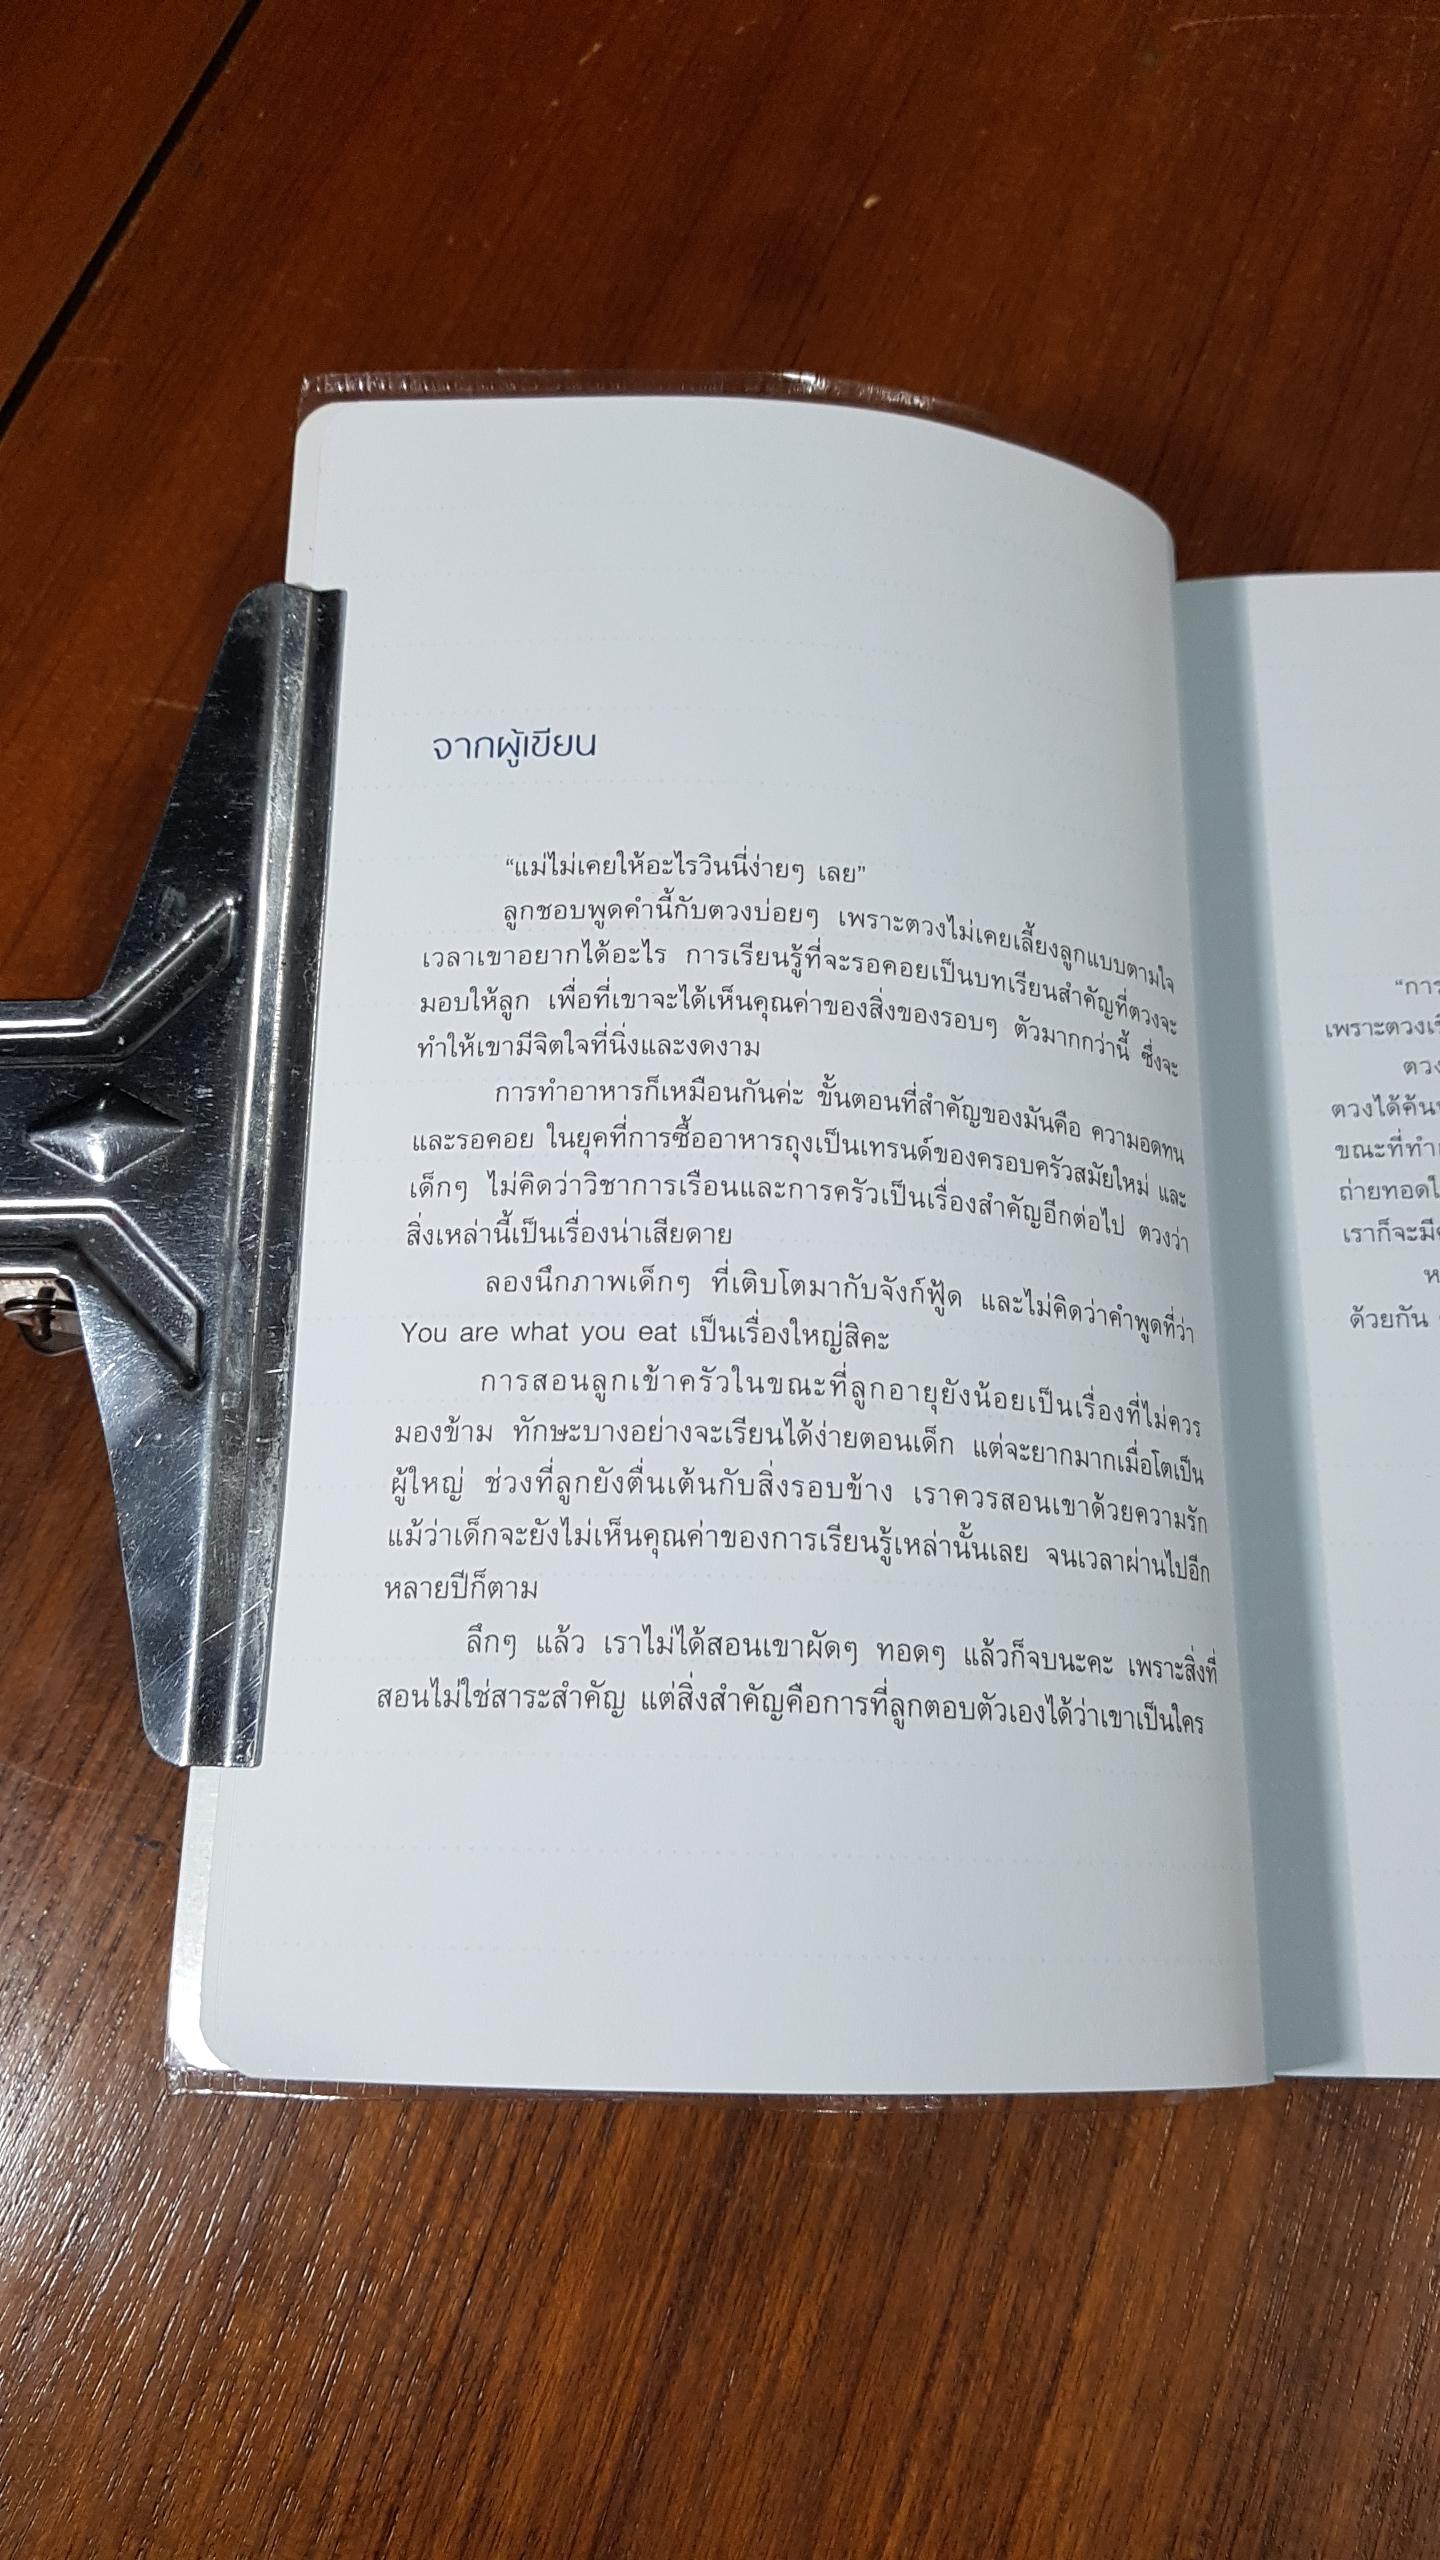 จากผู้เขียน
“แม่ไม่เคยให้อะไรวินนี่ง่ายๆ เลย”
ลูกชอบพูดคำนี้กับตวงบ่อยๆ เพราะตวงไม่เคยเลี้ยงลูกแบบตามใจ
เวลาเขาอยากได้อะไร การเรียนรู้ที่จะรอคอยเป็นบทเรียนสำคัญที่ตวงจะ
มอบให้ลูก เพื่อที่เขาจะได้เห็นคุณค่าของสิ่งของรอบๆ ตัวมากกว่านี้ ซึ่งจะ
ทำให้เขามีจิตใจที่นิ่งและงดงาม
การทำอาหารก็เหมือนกันค่ะ ขั้นตอนที่สำคัญของมันคือ ความอดทน
และรอคอย ในยุคที่การซื้ออาหารถุงเป็นเทรนด์ของครอบครัวสมัยใหม่ และ
เด็กๆ ไม่คิดว่าวิชาการเรือนและการครัวเป็นเรื่องสำคัญอีกต่อไป ตวงว่า
สิ่งเหล่านี้เป็นเรื่องน่าเสียดาย
ลองนึกภาพเด็กๆ ที่เติบโตมากับจังก์ฟู้ด และไม่คิดว่าคำพูดที่ว่า
You are what you eat เป็นเรื่องใหญ่สิคะ
การสอนลูกเข้าครัวในขณะที่ลูกอายุยังน้อยเป็นเรื่องที่ไม่ควร
มองข้าม ทักษะบางอย่างจะเรียนได้ง่ายตอนเด็ก แต่จะยากมากเมื่อโตเป็น
ผู้ใหญ่ ช่วงที่ลูกยังตื่นเต้นกับสิ่งรอบข้าง เราควรสอนเขาด้วยความรัก
แม้ว่าเด็กจะยังไม่เห็นคุณค่าของการเรียนรู้เหล่านั้นเลย จนเวลาผ่านไปอีก
หลายปีก็ตาม
ลึกๆ แล้ว เราไม่ได้สอนเขาผัดๆ ทอดๆ แล้วก็จบนะคะ เพราะสิ่งที่
สอนไม่ใช่สาระสำคัญ แต่สิ่งสำคัญคือการที่ลูกตอบตัวเองได้ว่าเขาเป็นใคร
“การ
เพราะตวงเ
ตวง
ตวงได้ค้น
ขณะที่ทำ
ถ่ายทอด
เราก็จะมี
ห
ด้วยกัน